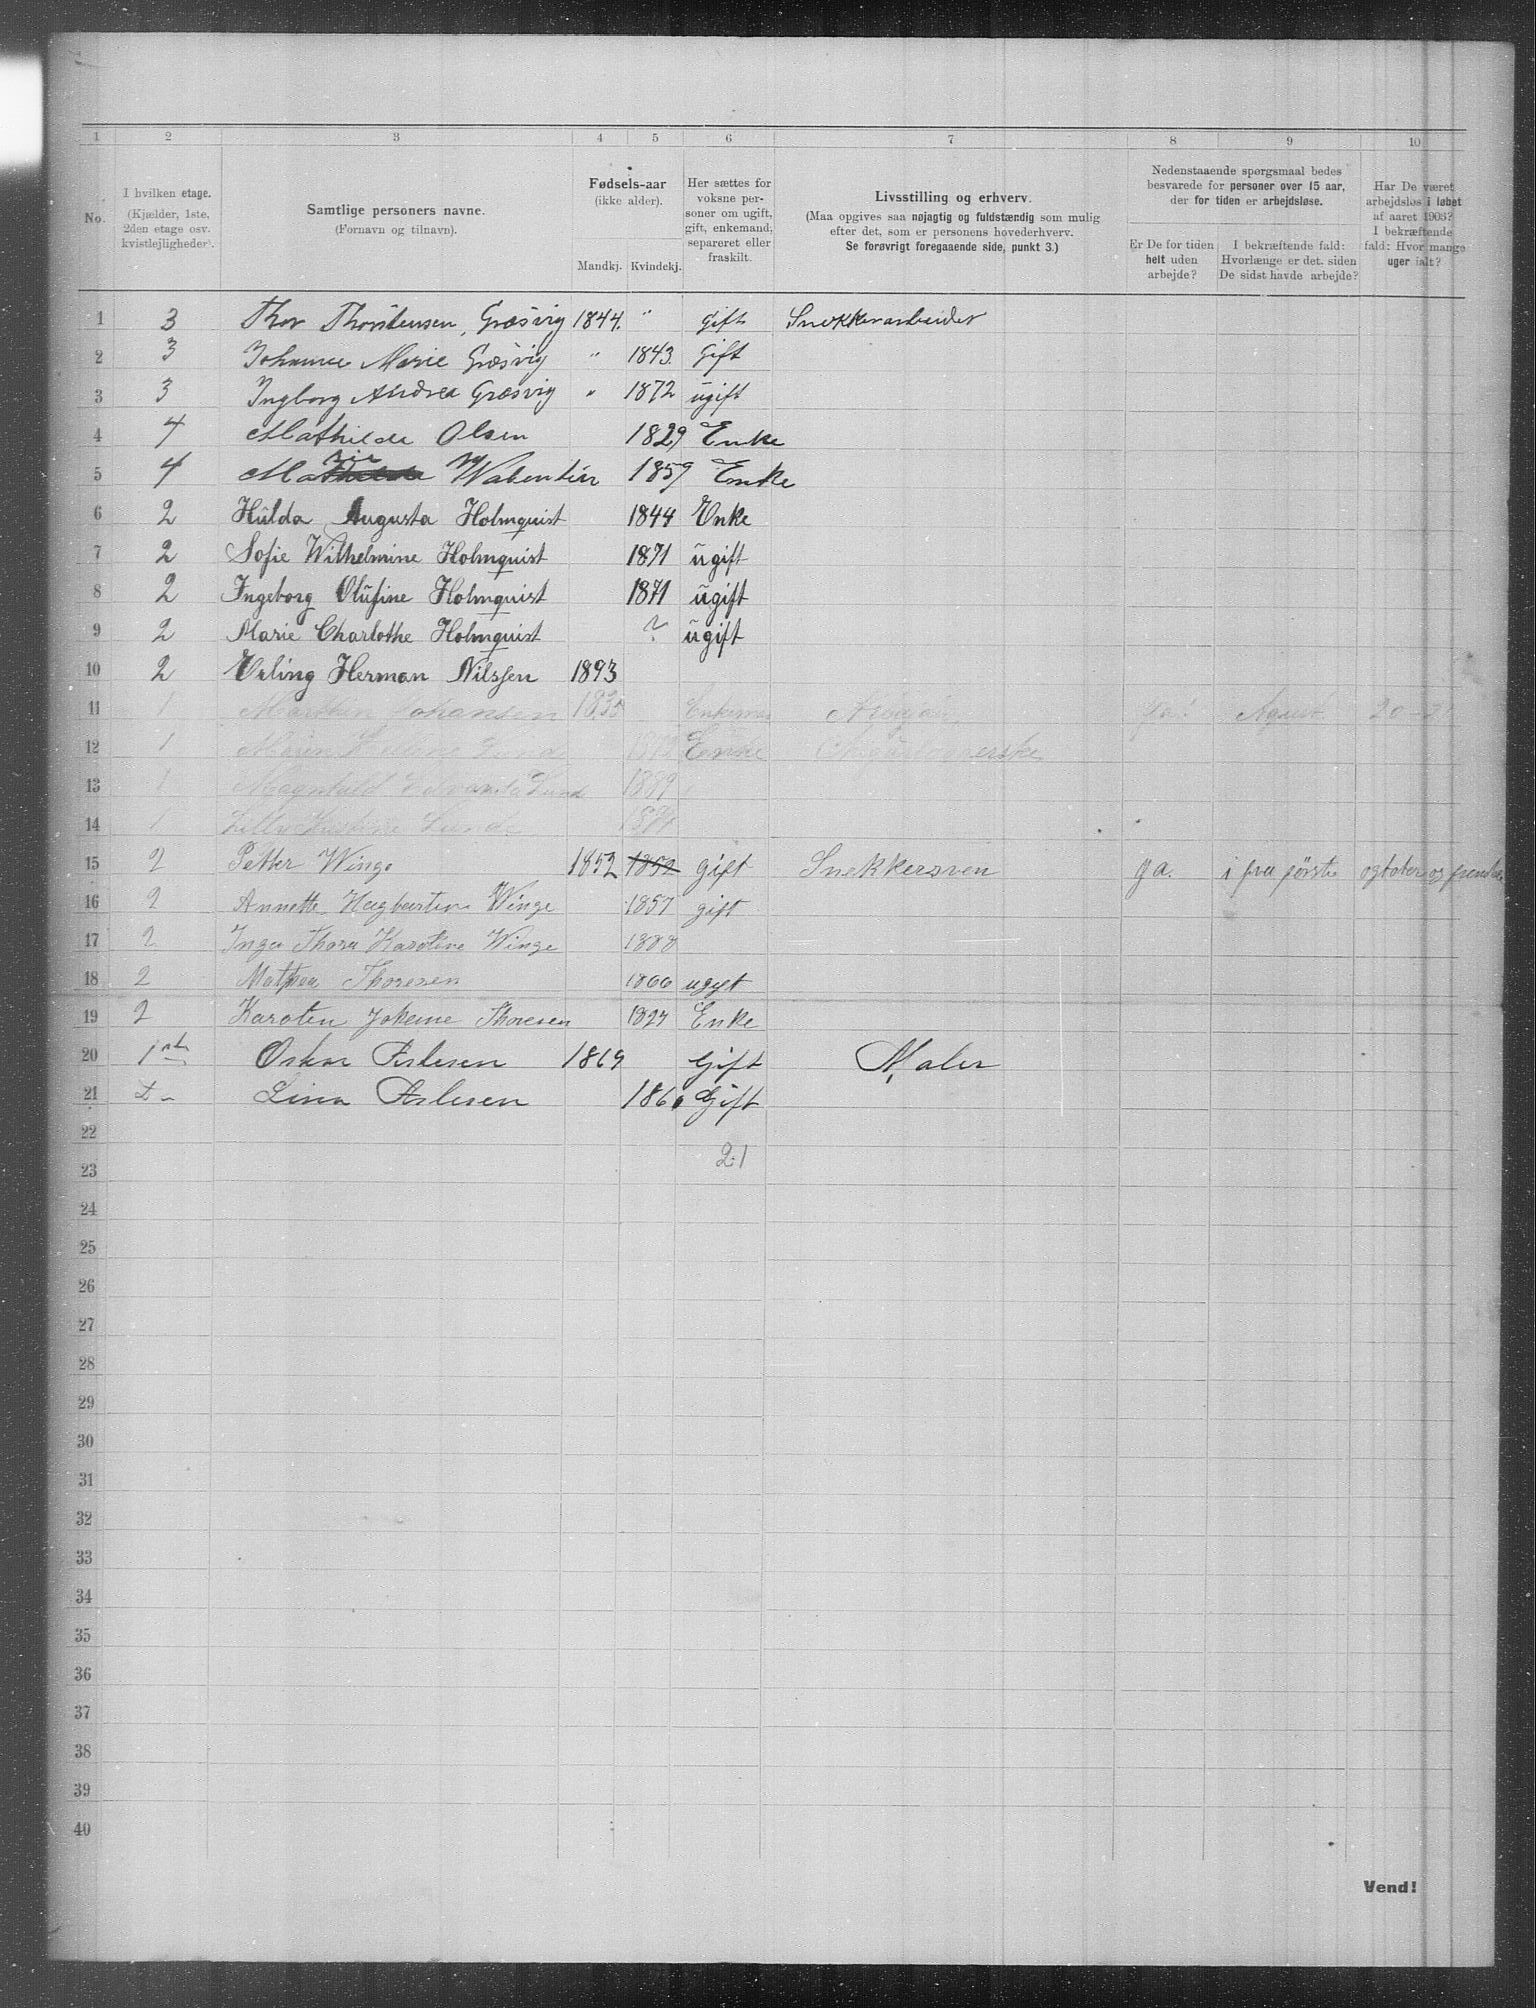 1 2 3 4 5 6 7 8 9 10
No.
I hvilken etage.
(Kjælder, 1ste,
2den etage osv.
kvistlejligheder).
Samtlige personers navne.
(Fornavn og tilnavn).
Fødsels-aar
(ikke alder).
Mandkj. Kvindekj.
Her sættes for
voksne per-
soner om ugift,
gift, enkemand,
separeret eller
fraskilt.
Livsstilling og erhverv.
(Maa opgives saa nøjagtig og fuldstændig som mulig
efter det, som er personens hovederhverv.
Se forøvrigt foregaaende side, punkt 3.)
Nedenstaaende spørgsmaal bedes
besvarede for personer over 15 aar,
der for tiden er arbejdsløse.
Er De for tiden
helt uden
arbejde?
I bekræftende fald:
Hvorlænge er det. siden
De sidst havde arbejde?
Har De været
arbejdsløs i løbet
af aaret 1903?
I bekræftende
fald: Hvor mange
uger ialt?
1 3 Thor Thorstensen, Græsvig 1844. " Gift Snekkerarbeider
2 3 Johanne Marie Græsvig " 1843. Gift
3 3 Ingborg Andrea Græsvig " 1872 ugift
4 4 Mathilde Olsen 1829 Enke
5 4 1859 Enke
6 2 Hulda Augusta Holmquist 1844 Enke
7 2 Sofie Wilhelmine Holmquist 1871 ugift
8 2 Ingeborg Olufine Holmquist 1871 ugift
9 2 Marie Charlothe Holmquist ? ugift
10 2 Erling Herman Nilssen 1893
11 1 Johansen Ja! Agust
12 1 Lund Enke
13 1 Lund 1889
14 1 Lund
15 2 Petter Winge 1852 1852 gift Snekkersven ja. i fra første
16 2 Annette Winge 1857 gift
17 2 Inga Thora Karoline Winge 1888
18 2 Mathea Thoresen 1866 ugift
19 2 Thoresen 1827 Enke
20 1ste Oskar Aslesen 1869 Gift Maler
21 D - Lina Aslesen Gift
22
23 21
24
25
26
27
28
29
30
31
32
33
34
35
36
37
38
39
40
Vend!